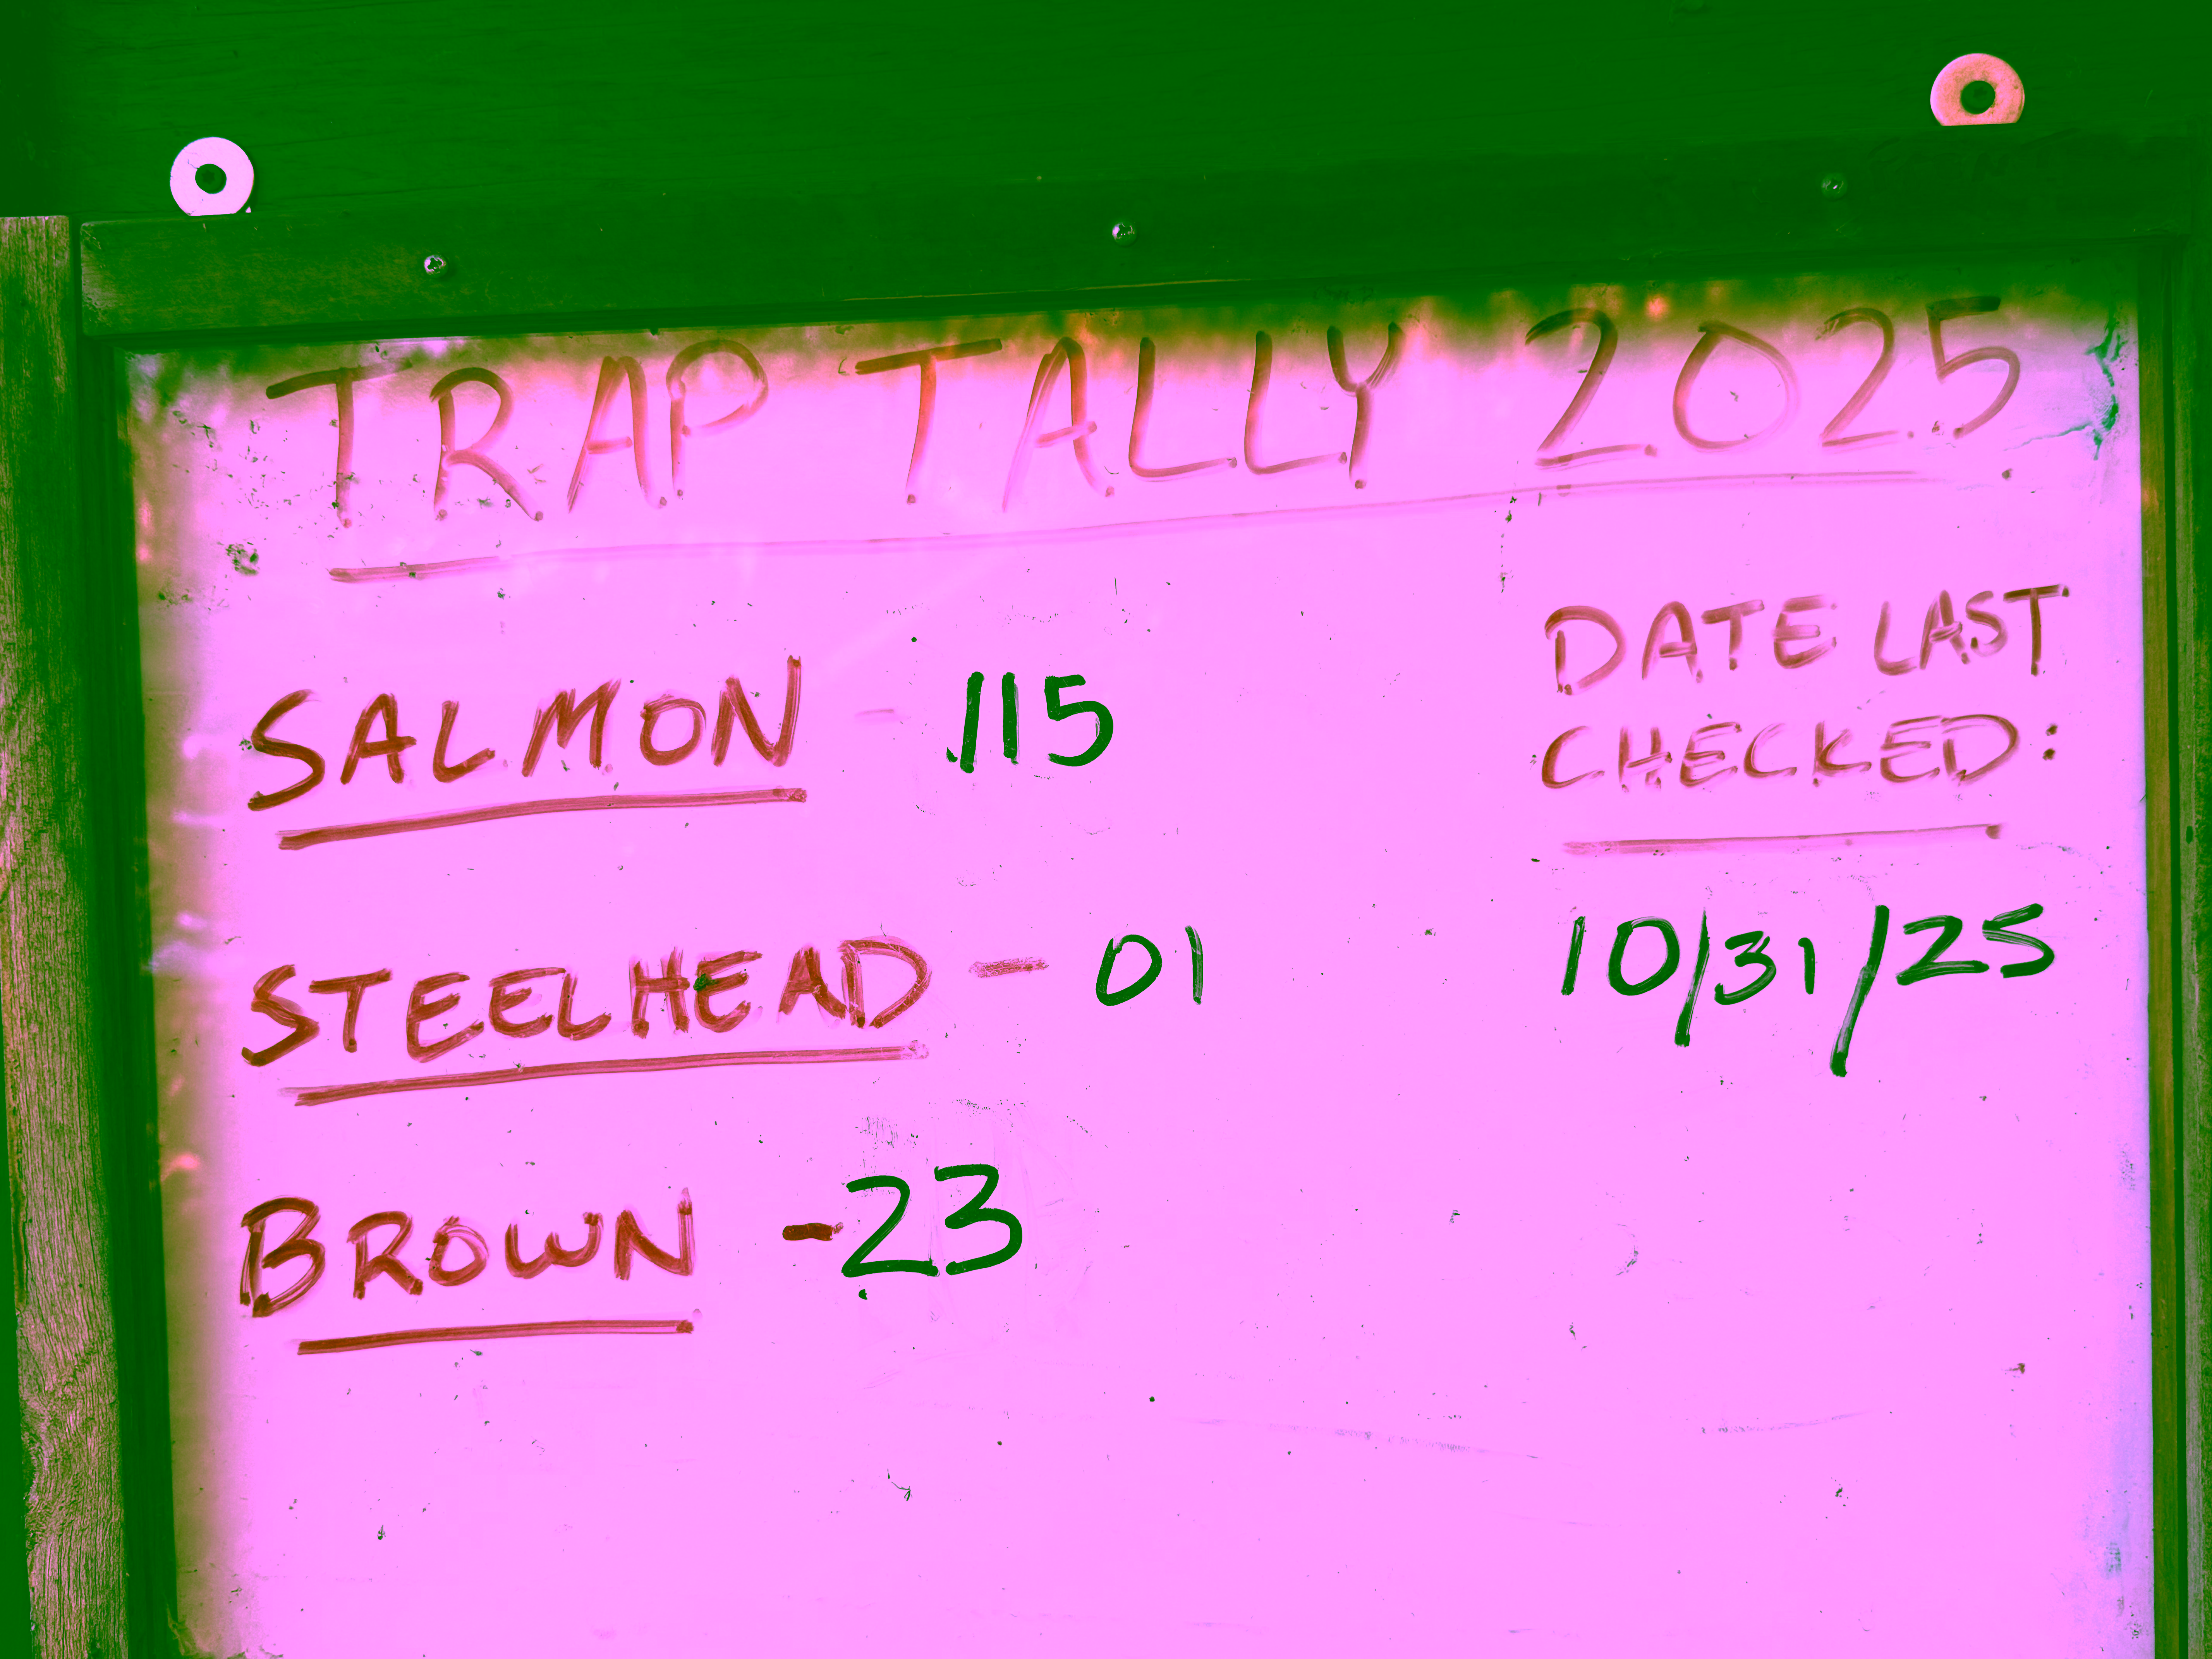 TRAP TALLY 2025
SALMON - 115
STEELHEAD - 01
BROWN - 23
DATE LAST
CHECKED:
10/31/25